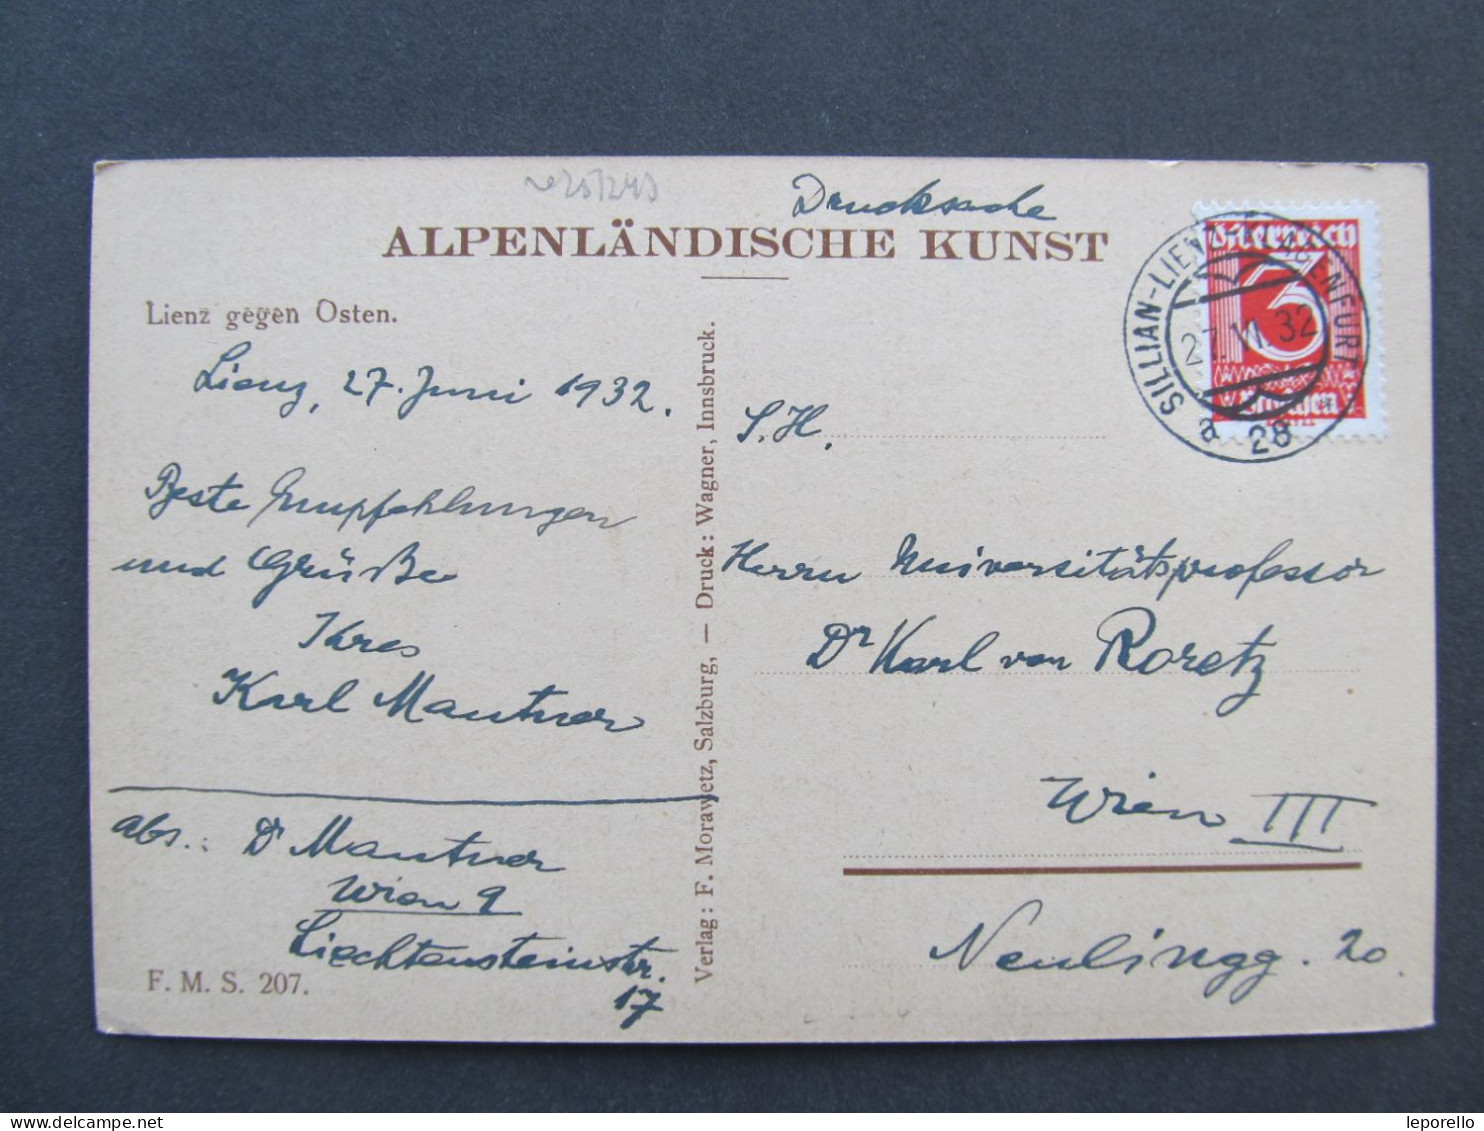 Drucksache
ALPENLÄNDISCHE KUNST
Lienz gegen Osten.
Lienz, 27. Juni 1932.
Beste Empfehlungen
und Grüße
Ihres
Karl Mautner
abs.: Dr Mautner
Wien 9
Liechtensteinstr.
17
F. M. S. 207.
Verlag: F. Morawetz, Salzburg, — Druck: Wagner, Innsbruck.
Österreich
13
Groschen
SILLIAN-LIENZ-KLAGENFURT
27. VI. 32
a 28
S. H.
Herrn Universitätsprofessor
Dr Karl von Roretz
Wien III
Neulingg. 20.
leporello